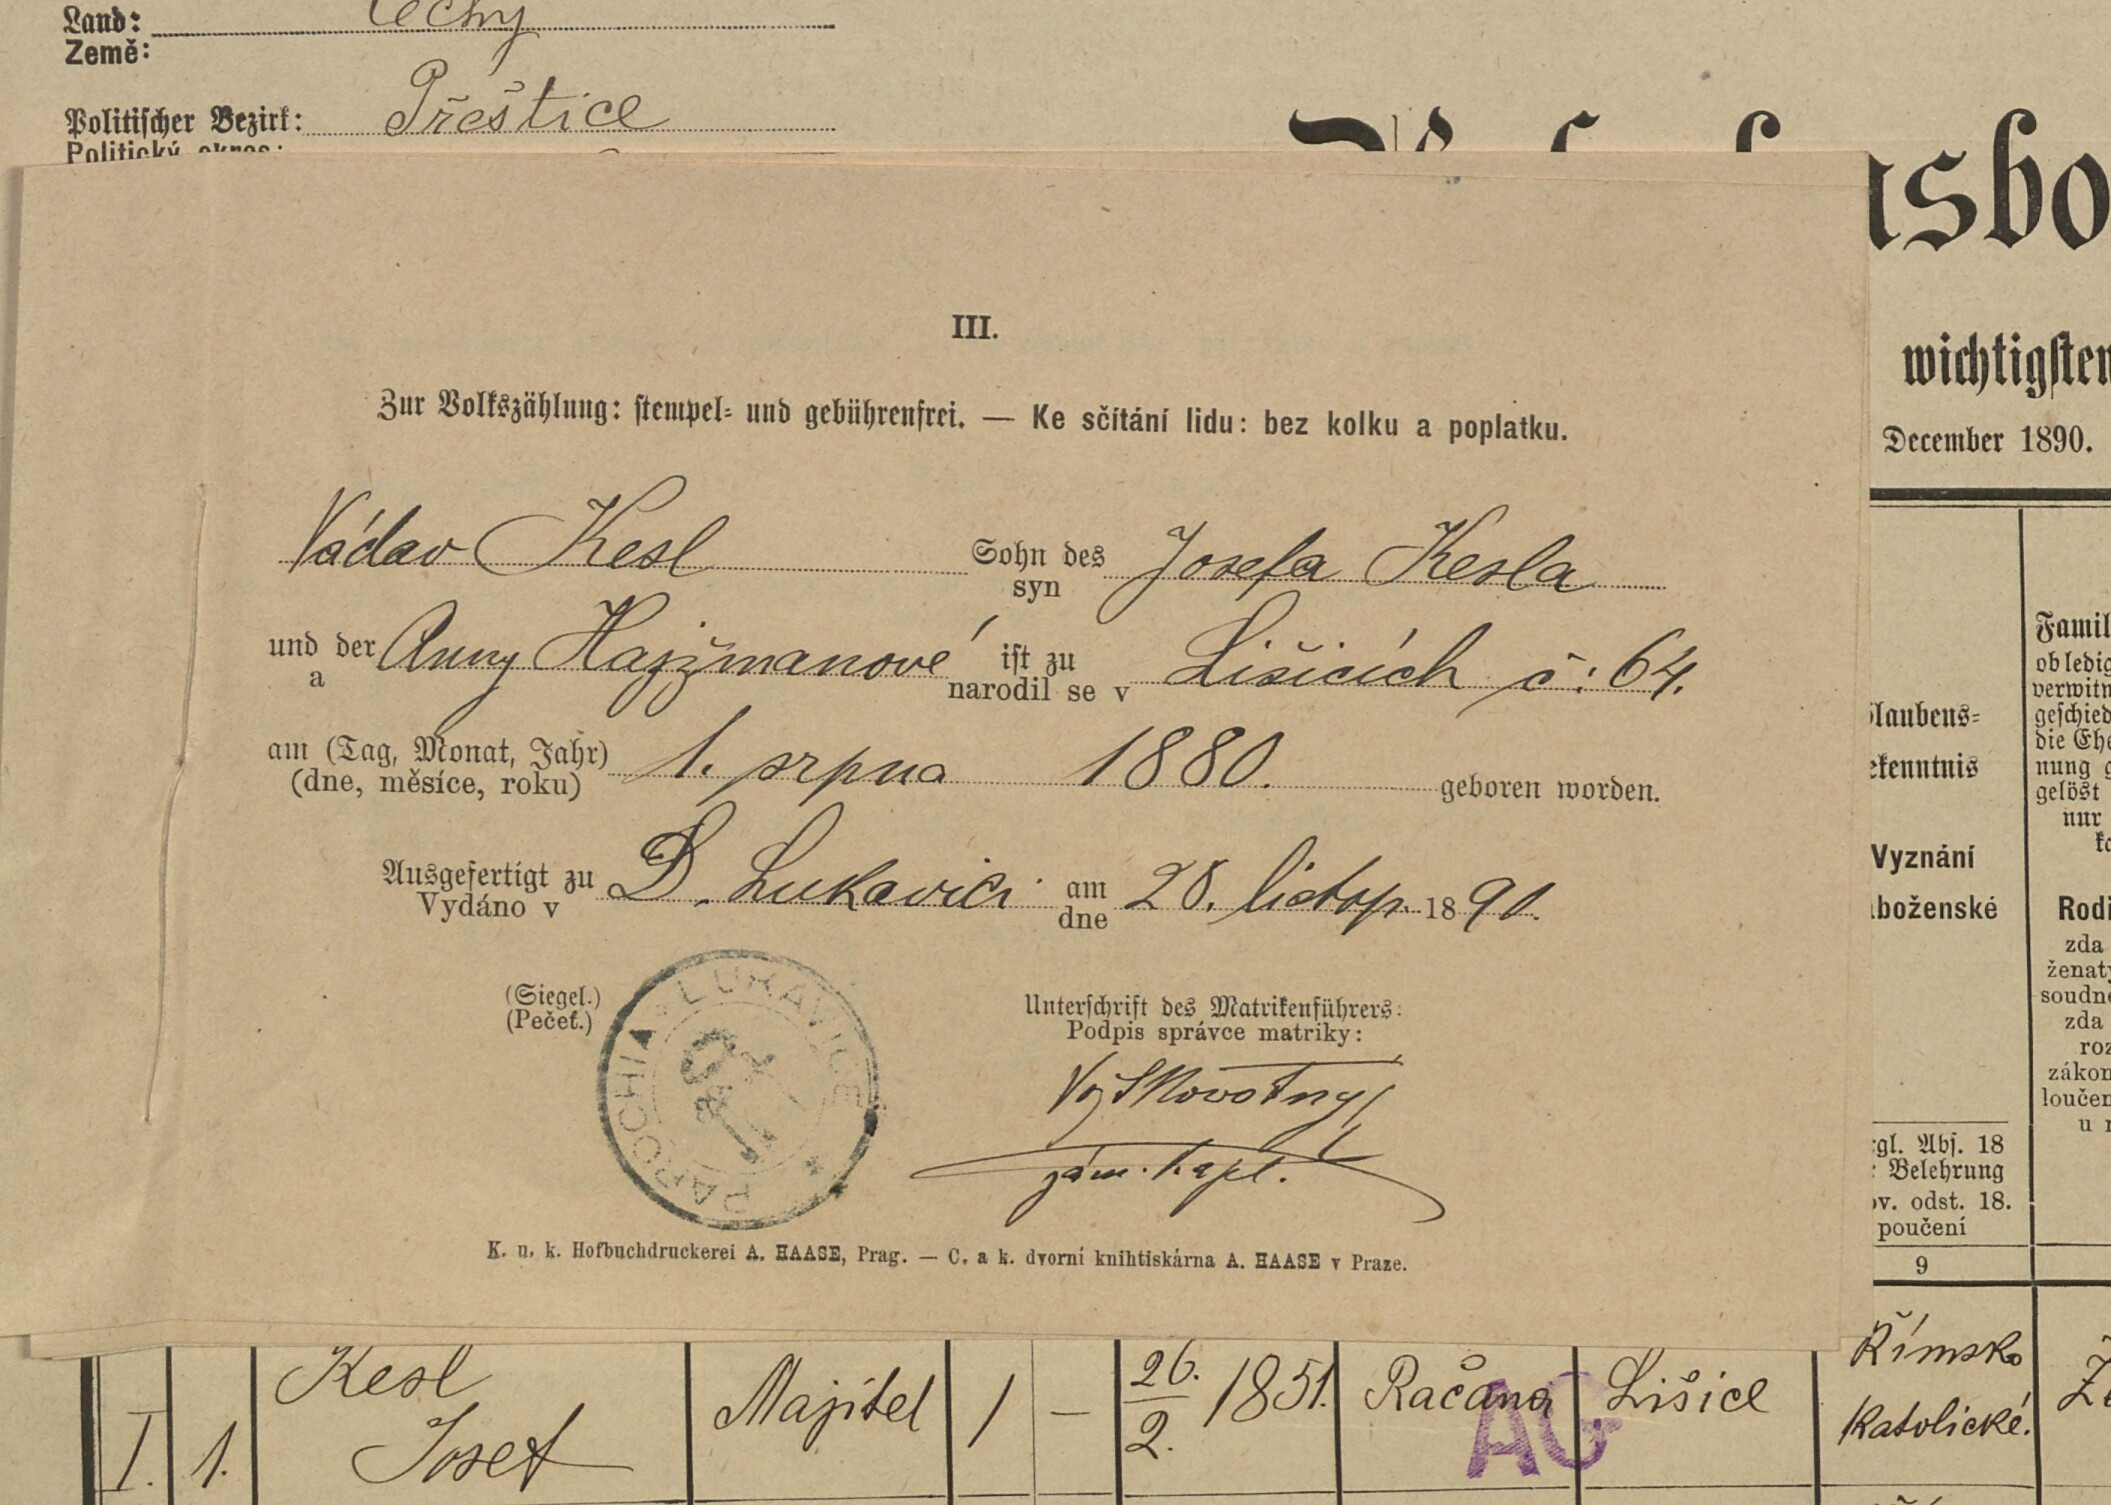 Land: Čechy
Země:
Politischer Bezirk: Přeštice
Politický okres:
December 1890.
wichtigsten
III.
Zur Volkszählung: stempel- und gebührenfrei. — Ke sčítání lidu: bez kolku a poplatku.
Václav Kesl Sohn des syn Josefa Kesla
und der a Anny Hajžmanové ist zu narodil se v Lišicích č: 64.
am (Tag, Monat, Jahr) (dne, měsíce, roku) 1. srpna 1880. geboren worden.
Ausgefertigt zu Vydáno v D. Lukavici am dne 28. listop. 1890.
(Siegel.)
(Pečeť.)
PAROCHIA LUKAVICE
Unterschrift des Matrikenführers:
Podpis správce matriky:
Vojt Novotný
zám. kapl.
K. u. k. Hofbuchdruckerei A. HAASE, Prag. — C. a k. dvorní knihtiskárna A. HAASE v Praze.
Famil
ob ledig
verwitn
geschied
die Ehe
nung g
gelöst
nur
Rodi
zda
ženatý
soudně
zda
roz
zákon
loučen
u n
laubens-
ekenntnis
Vyznání
boženské
gl. Abs. 18
Belehrung
ov. odst. 18.
poučení
9
I. 1. Kesl Josef Majitel 1 — 26./2. 1851. Račana Lišice Římsko katolické.
AG